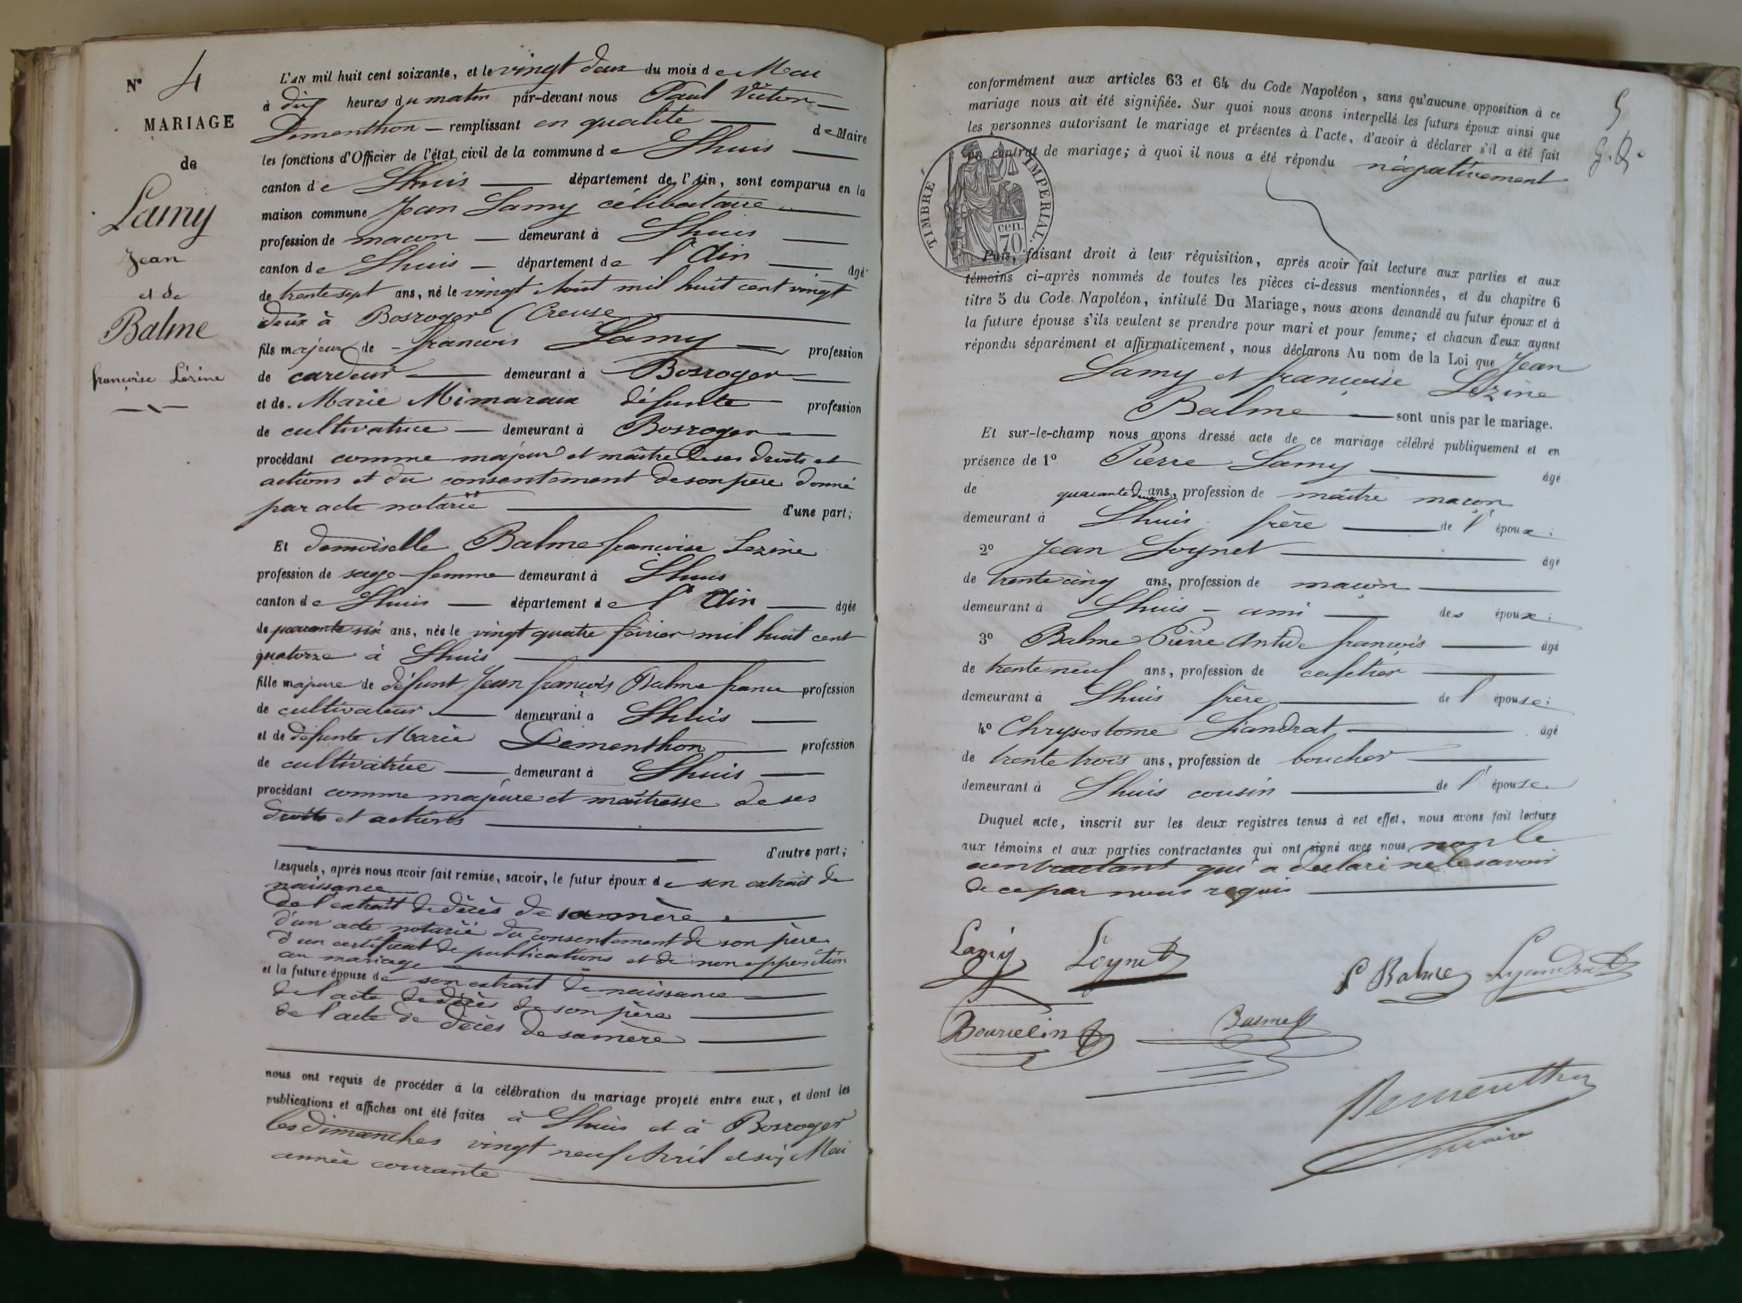 N° 4
MARIAGE
de
Lamy
Jean
et de
Balme
françoise Lézine
L'AN mil huit cent soixante, et le vingt deux du mois de Mai
à dix heures du matin par-devant nous Paul Victor
Dementhon remplissant en qualité de Maire
les fonctions d'Officier de l'état civil de la commune de Lhuis
canton de Lhuis département de l'Ain, sont comparus en la
maison commune Jean Lamy célibataire
profession de maçon demeurant à Lhuis
canton de Lhuis département de l'Ain âgé
de trente sept ans, né le vingt Aout mil huit cent vingt
deux à Bosroger (Creuse
fils majeur de françois Lamy profession
de cardeur demeurant à Bosroger
et de Marie Mimaraux défunte profession
de cultivatrice demeurant à Bosroger
procédant comme majeur et maître de ses droits et
actions et du consentement de son père donné
par acte notarié d'une part;
Et demoiselle Balme françoise Lezine
profession de sage-femme demeurant à Lhuis
canton de Lhuis département de l'Ain âgée
de quarante six ans, née le vingt quatre février mil huit cent
quatorze à Lhuis
fille majeure de défunt Jean françois Balme profession
de cultivateur demeurant à Lhuis
et de défunte Marie Dementhon profession
de cultivatrice demeurant à Lhuis
procédant comme majeure et maîtresse de ses
droits et actions
d'autre part;
Lesquels, après nous avoir fait remise, savoir, le futur époux de son extrait de
naissance
de l'extrait de décès de sa mère
d'un acte notarié du consentement de son père
d'un certificat de publications et de non opposition
au mariage
et la future épouse de son extrait de naissance
de l'acte de décès de son père
de l'acte de décès de sa mère
nous ont requis de procéder à la célébration du mariage projeté entre eux, et dont les
publications et affiches ont été faites à Lhuis et à Bosroger
les dimanches vingt neuf Avril et six Mai
année courante
5
conformément aux articles 63 et 64 du Code Napoléon, sans qu'aucune opposition à ce
mariage nous ait été signifiée. Sur quoi nous avons interpellé les futurs époux ainsi que
les personnes autorisant le mariage et présentes à l'acte, d'avoir à déclarer s'il a été fait
un contrat de mariage; à quoi il nous a été répondu négativement
TIMBRE IMPERIAL
cen.
70
Puis, faisant droit à leur réquisition, après avoir fait lecture aux parties et aux
témoins ci-après nommés de toutes les pièces ci-dessus mentionnées, et du chapitre 6
titre 5 du Code Napoléon, intitulé Du Mariage, nous avons demandé au futur époux et à
la future épouse s'ils veulent se prendre pour mari et pour femme; et chacun d'eux ayant
répondu séparément et affirmativement, nous déclarons Au nom de la Loi que Jean
Lamy et françoise Lezine
Balme sont unis par le mariage.
Et sur-le-champ nous avons dressé acte de ce mariage célébré publiquement et en
présence de 1° Pierre Lamy âgé
de quarante deux ans, profession de maître maçon
demeurant à Lhuis frère de l'époux;
2° Jean Loynet âgé
de trente cinq ans, profession de maçon
demeurant à Lhuis ami des époux;
3° Balme Pierre Antide françois âgé
de trente neuf ans, profession de cafetier
demeurant à Lhuis frère de l'épouse;
4° Chrysostome Liandrat âgé
de trente trois ans, profession de boucher
demeurant à Lhuis cousin de l'épouse
Duquel acte, inscrit sur les deux registres tenus à cet effet, nous avons fait lecture
aux témoins et aux parties contractantes qui ont signé avec nous, non le
contractant qui a declaré ne le savoir
de ce par nous requis
Lamy Loynet P Balme Lyandrat
Balme
Dementhon
maire